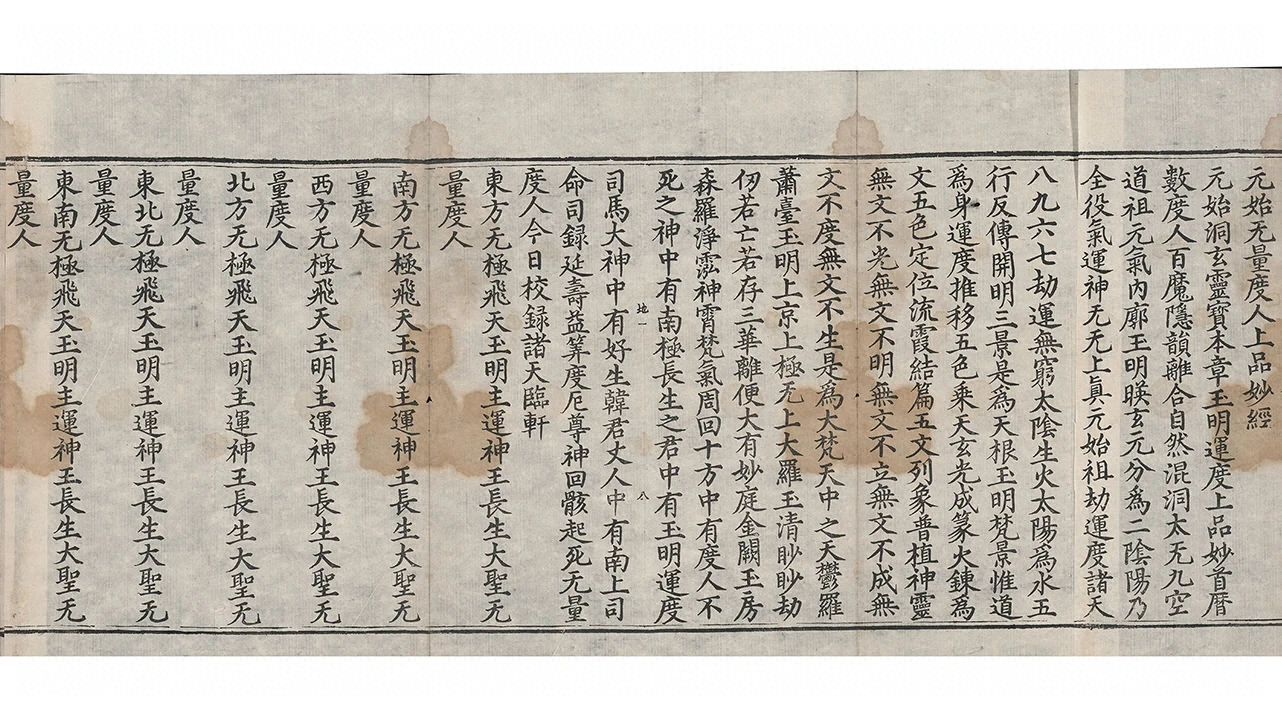 元始无量度人上品妙經
元始洞玄靈寶本章玉明運度上品妙首曆
數度人百魔隱韻離合自然混洞太无九空
道祖元氣內廓玉明暎玄元分為二陰陽乃
全役氣運神无无上真元始祖劫運度諸天
八九六七劫運無窮太陰生火太陽為水五
行反傳開明三景是為天根玉明梵景惟道
為身運度推移五色乘天玄光成篆火鍊為
文五色定位流霞結篇五文列象普植神靈
無文不光無文不明無文不立無文不成無
文不度無文不生是為大梵天中之天鬱羅
蕭臺玉明上京上極无上大羅玉清眇眇劫
仞若亡若存三華離便大有妙庭金闕玉房
森羅淨泓神霄梵氣周回十方中有度人不
死之神中有南極長生之君中有玉明運度
地一 八
司馬大神中有好生韓君丈人中有南上司
命司録延壽益筭度厄尊神回骸起死无量
度人今日校録諸天臨軒
東方无極飛天玉明主運神王長生大聖无
量度人
南方无極飛天玉明主運神王長生大聖无
量度人
西方无極飛天玉明主運神王長生大聖无
量度人
北方无極飛天玉明主運神王長生大聖无
量度人
東北无極飛天玉明主運神王長生大聖无
量度人
東南无極飛天玉明主運神王長生大聖无
量度人